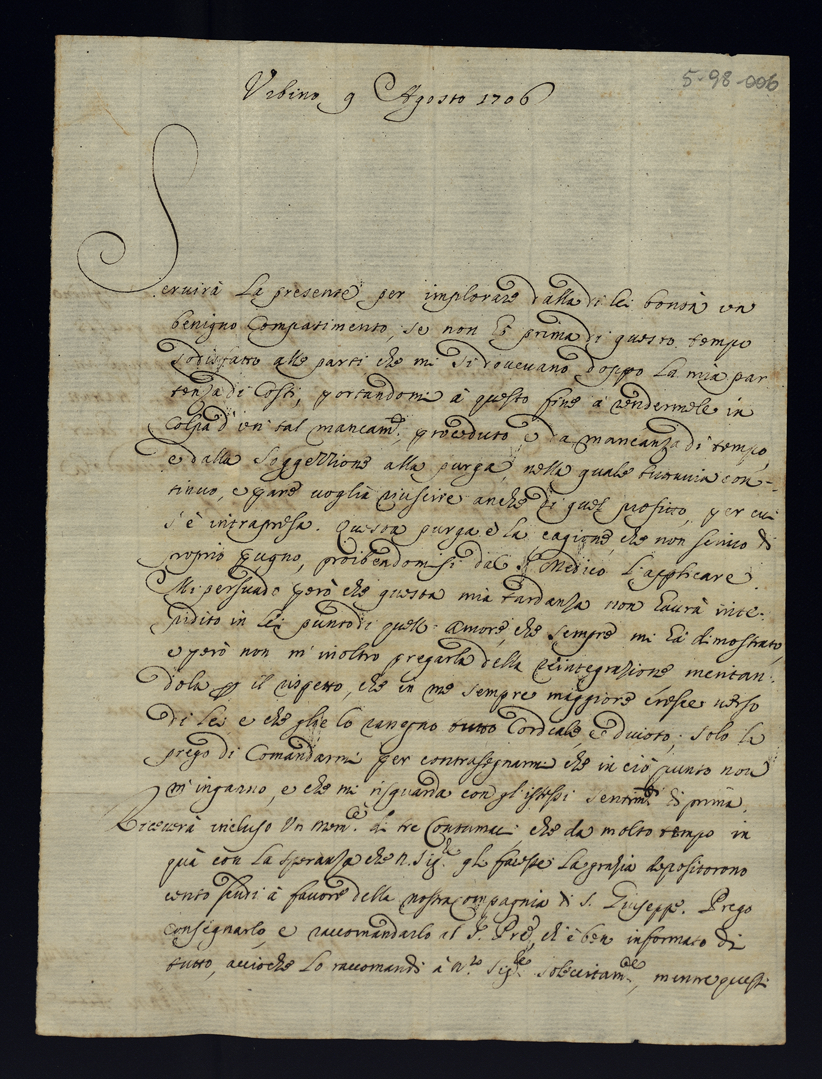 5-98-006
Vrbino 9 Agosto 1706
Seruirà la presente per implorare dalla di lei bontà un
benigno Compatimento, se non hò prima di questo tempo
sodisfatto alle parti che mi si doueuano doppo la mia par
tenza di Costì, portandomi à questo fine à rendermele in
Colpa d'un tal mancam.to, proceduto e da mancanza di tempo,
e dalla soggezzione alla purga, nella quale tuttauia con-
tinuo, e pare uoglia riuscire anche di quel profitto, per cui
s'è intrapresa. Questa purga è la cagione, che non scriuo di
proprio pugno, proibendomisi dal S.r Medico l'applicare.
Mi persuado però che questa mia tardanza non haurà inte-
pidito in lei punto di quell'Amore, che sempre mi hà dimostrato,
e però non m'inoltro pregarla della reintegrazione meritan-
dola p il rispetto, che in me sempre maggiore cresce uerso
di lei e che glie lo rassegno tutto Cordiale e diuoto; solo la
prego di Comandarmi per contrasegnarmi che in ciò punto non
m'inganno, e che mi risguarda con gl'istessi sentim.ti di prima.
Riceuerà incluso Un mem.le di tre Contumaci che da molto tempo in
quà con la speranza che N. Sig.re gli facesse la grazia depositorono
cento scudi à fauore della nostra Compagnia di S. Giuseppe. Prego
consegnarlo, e raccomandarlo al S. Pre, ch'è ben informato di
tutto, acciochè lo raccomandi à N.ro Sig.re solecitam.te, mentre questi